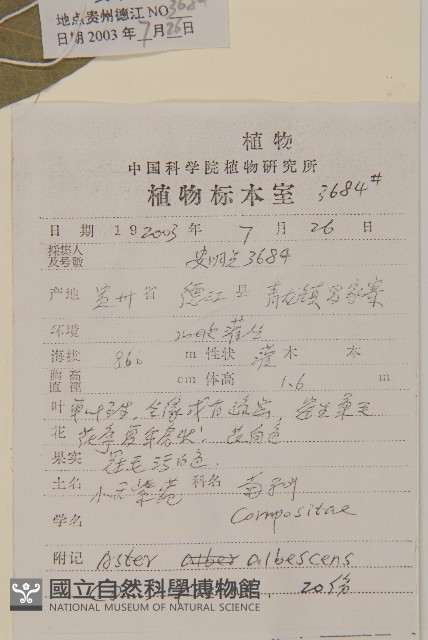 地点贵州德江 NO 3684
日期 2003 年 7 月 26 日
植物
中国科学院植物研究所
植物标本室 3684#
日期 19 2003 年 7 月 26 日
採集人及号数 安明先 3684
产地 贵州省 德江县 青龙镇
环境
海拔 860 m 性状 灌木 本
胸高直徑 cm 体高 1.6 m
叶 单叶互生,全缘或有
花 花序 花白色
果实 冠毛污白色.
土名 小舌紫菀 科名 菊科
学名 Compositae
附记 Aster albescens
20份
國立自然科學博物館
NATIONAL MUSEUM OF NATURAL SCIENCE